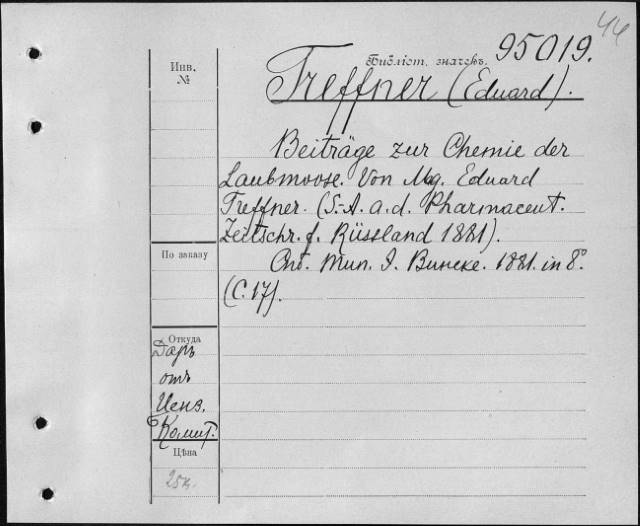 44
Инв.
№
Библіот. значекъ.
95019.
Treffner (Eduard).
Beiträge zur Chemie der
Laubmoose. Von Mg. Eduard
Treffner. (S.-A. a. d. Pharmaceut.
Zeitschr. f. Rüssland 1881).
Спб. Тип. I. Вuncke. 1881. in 8°.
(С. 17).
По заказу
Откуда
Даръ
отъ
Ценз.
Комит.
Цѣна
25к.